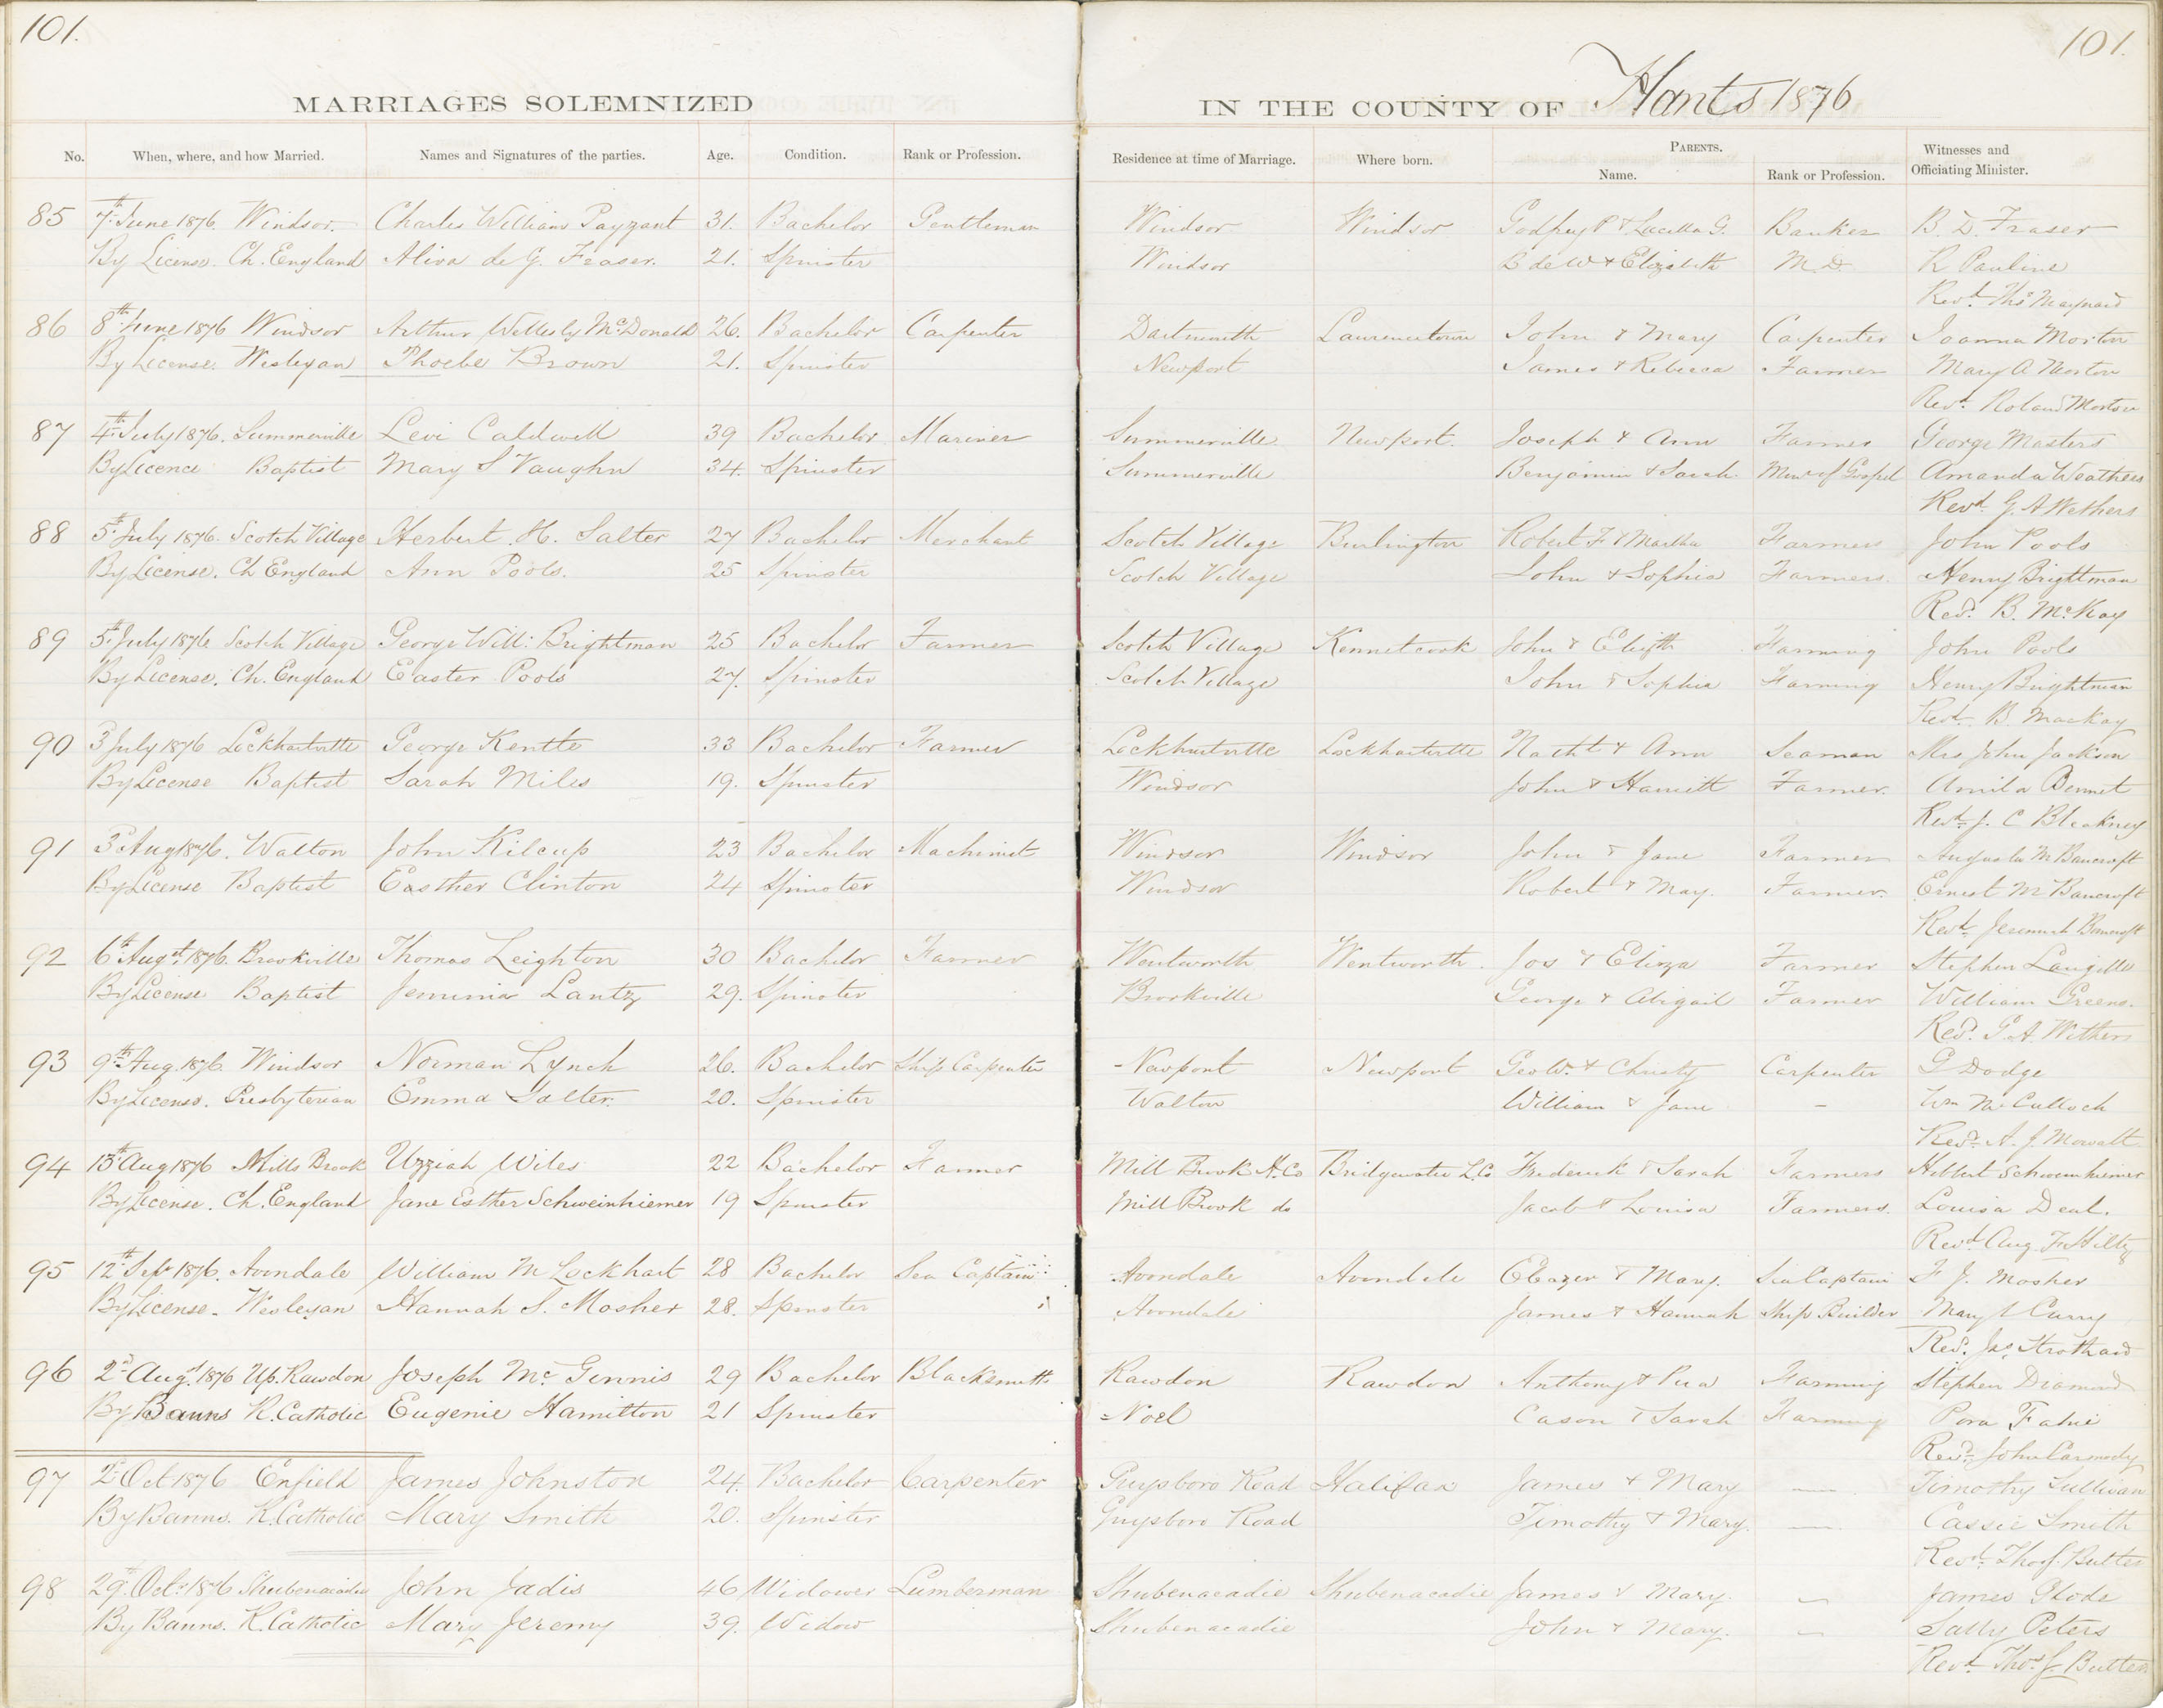 101.
101.
MARRIAGES SOLEMNIZED
IN THE COUNTY OF Hants 1876
No. When, where, and how Married. Names and Signatures of the parties. Age. Condition. Rank or Profession. Residence at time of Marriage. Where born. PARENTS. Name. Rank or Profession. Witnesses and Officiating Minister.
85 7th June 1876 Windsor. Charles William Payzant 31. Bachelor Gentleman Windsor Windsor Godfrey P & Lucilla G. Banker B. D. Fraser
By License. Ch. England de G. Fraser. 21. Spinster Windsor B de W & Elizabeth M.D. R Pauline
Revd. Thos Maynard
86 8th June 1876 Windsor Arthur Wellesly McDonald 26. Bachelor Carpenter Dartmouth Lawrencetown John & Mary Carpenter Joanna Morton
By License. Wesleyan Phoebe Brown 21. Spinster Newport James & Rebecca Farmer Mary A Morton
Revd. Roland Morton
87 4th July 1876. Summerville Levi Caldwell 39 Bachelor Mariner Summerville Newport. Joseph & Ann Farmer George Masters
By Licence Baptist Mary S Vaughn 34. Spinster Summerville Benjamin & Sarah Minr of Gospel Amanda Weathers
Revd. G. A Wethers
88 5th July 1876. Scotch Village Herbert H. Salter 27 Bachelor Merchant Scotch Village Burlington Robert F & Martha Farmers John Pools
By License. Ch England Ann Pools. 25 Spinster Scotch Village John & Sophia Farmers. Henry Brightman
Revd. B. McKay
89 5th July 1876 Scotch Village George Will: Brightman 25 Bachelor Farmer Scotch Village Kennetcook John & Elizth Farming John Pools
By License. Ch. England Easter Pools 27. Spinster Scotch Village John & Sophia Farming Henry Brightman
Revd. B. Mackay
90 3 July 1876 Lockhartville George Kentle 33 Bachelor Farmer Lockhartville Lockhartville Nathl & Ann Seaman Mrs John Jackson
By License Baptist Sarah Miles 19. Spinster Windsor John & Harriett Farmer. Bennet
Revd. J. C Bleakney
91 3d Aug 1876. Walton John Kilcup 23 Bachelor Machinist Windsor Windsor John & Jane Farmer Augusta M Bancroft
By License Baptist Easther Clinton 24 Spinster Windsor Robert & May. Farmer. Ernest M Bancroft
Revd. Jeremiah Bancroft
92 6th Augst. 1876. Brookville Thomas Leighton 30 Bachelor Farmer Wentworth Wentworth. Jos & Eliza Farmer Stephen Langille
By License Baptist Jemima Lantz 29. Spinster Brookville George & Abigail Farmer William Greeno.
Revd. G. A. Withers
93 9th Aug. 1876. Windsor Norman Lynch 26. Bachelor Ship Carpenter Newport Newport Geo W. & Christy Carpenter G Dodge
By License. Presbyterian Emma Salter. 20. Spinster Walton William & Jane – Wm McCulloch
Revd. A. J. Mowatt
94 15th Aug 1876 Mills Brook Uzziah Wiles 22 Bachelor Farmer Mill Brook H. Co Bridgewater L. Co Frederick & Sarah Farmers Schweinhiemer
By License. Ch. England Jane Esther Schweinhiemer 19 Spinster Mill Brook do Jacob & Louisa Farmers. Louisa Deal.
Revd. Aug. F Hiltz
95 12th Sepr 1876. Avondale William M Lockhart 28 Bachelor Sea Captain Avondale Avondale Eleazer & Mary. Sea Captain F J. Mosher
By License. Wesleyan Hannah S. Mosher 28. Spinster Avondale James & Hannah Ship Builder Mary Curry
Revd. Jas Strothard
96 2d Augt. 1876 Up. Rawdon Joseph McGinnis 29 Bachelor Blacksmith Rawdon Rawdon Anthony & Farming Stephen Diamond
By Banns R. Catholic Eugenie Hamilton 21 Spinster Noel Cason & Sarah Farming
Revd. John Carmody
97 2d Oct 1876 Enfield James Johnston 24. Bachelor Carpenter Guysboro Road Halifax James & Mary — Timothy Sullivan
By Banns. R. Catholic Mary Smith 20. Spinster Guysboro Road Timothy & Mary. — Cassie Smith
Revd. Thos J. Butler
98 29th Octr. 1876 Shubenacadie John Jadis 46 Widower Lumberman Shubenacadie Shubenacadie James & Mary. – James Glode
By Banns. R. Catholic Mary Jeremy 39. Widow Shubenacadie John & Mary. – Sally Peters
Revd. Thos J Butler